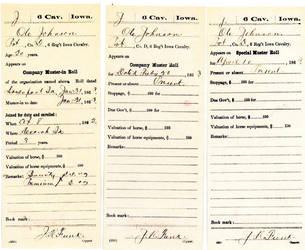 J | 6 Cav. | Iowa.
Ole Johnson
Pvt, Co. D, 6 Reg't Iowa Cavalry.
Age 20 years.
Appears on
Company Muster-in Roll
of the organization named above. Roll dated
Davenport Ia, Jan 31, 186
Muster-in to date Jan 31, 186
Joined for duty and enrolled:
When Oct 8, 1862
Where
Period 3 years.
Valuation of horse, $ 100
Valuation of horse equipments, $ 100
Remarks:
Book mark:
J. R. Funk
Copyist.
J | 6 Cav. | Iowa.
Ole Johnson
Pvt, Co. D, 6 Reg't Iowa Cavalry.
Appears on
Company Muster Roll
for
Present or absent Present
Stoppage, $ 100 for
Due Gov't, $ 100 for
Valuation of horse, $ 100
Valuation of horse equipments, $ 100
Remarks:
Book mark:
J. R. Funk
Copyist.
J | 6 Cav. | Iowa.
Ole Johnson
Pvt, Co. D, 6 Reg't Iowa Cavalry.
Appears on
Special Muster Roll
for April 10, 186
Present or absent Present
Stoppage, $ 100 for
Due Gov't, $ 100 for
Valuation of horse, $ 100
Valuation of horse equipments, $ 100
Remarks:
Book mark:
J. R. Funk
Copyist.